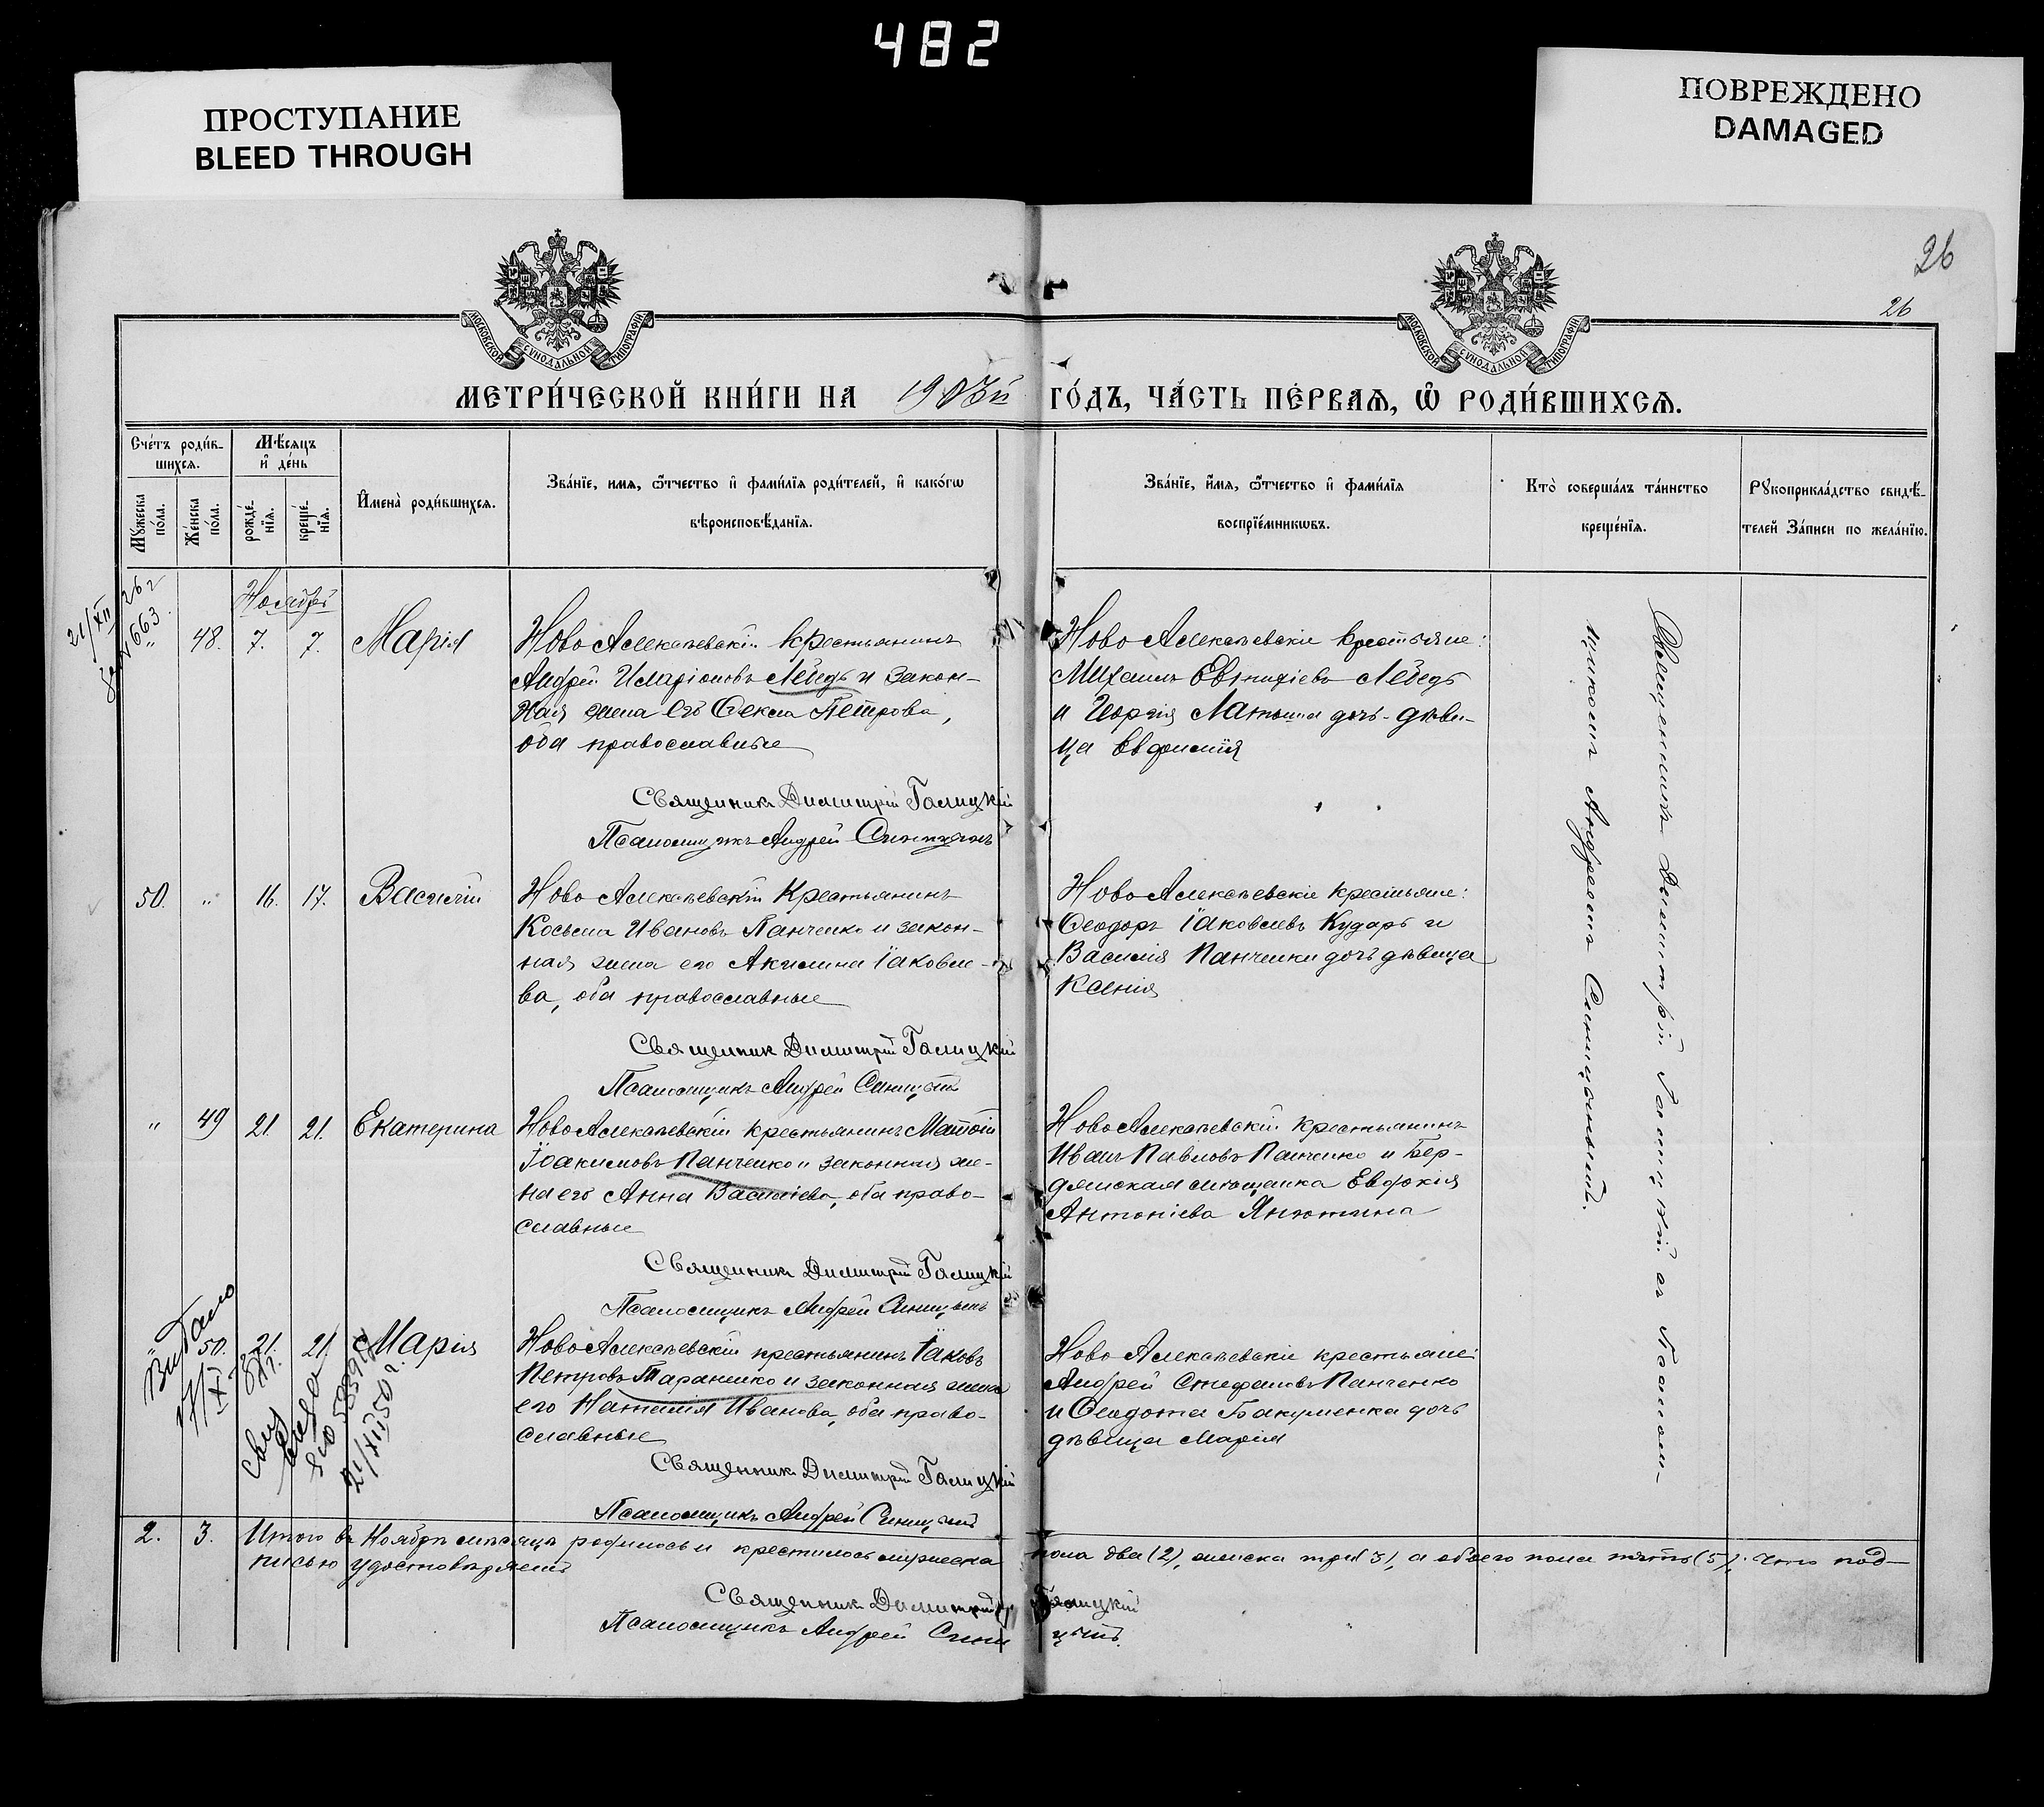 482
ПРОСТУПАНИЕ
BLEED THROUGH
ПОВРЕЖДЕНО
DAMAGED
26
26
МОСКОВСКОЙ СѴНОДАЛЬНОЙ ТИПОГРАФІИ
МОСКОВСКОЙ СѴНОДАЛЬНОЙ ТИПОГРАФІИ
МЕТРИ́ЧЕСКОЙ КНИ́ГИ НА 1903й ГО́ДЪ, ЧА́СТЬ ПЕ́РВАЯ, Ѡ҆ РОДИ́ВШИХСЯ.
Сче́тъ роди́в-
шихся.
Мѣ́сяцъ
и҆ де́нь
Мꙋ́жеска
по́ла.
Же́нска
по́ла.
рожде́-
нїя.
креще́-
нїя.
И҆мена̀ роди́вшихся.
Зва́нїе, имя, ѻ҆́тчество и҆ фами́лїя роди́телей, и҆ како́гѡ
вѣроисповѣ́данїя.
Зва́нїе, и҆́мя, ѻ҆́тчество и҆ фами́лїя
воспрїе́мникѡвъ.
Кто̀ соверша́лъ та́инство
креще́нїя.
Рꙋкоприкла́дство свидѣ́-
телей За́писи по жела́нїю.
21/XII 26 г
1663
Ноябрь
" 48. 7. 7. Марія
Ново Алексѣевскій крестьянинъ
Андрей Иларіоновъ Лебедь и закон-
ная жена его Ѳекла Петрова,
оба православные
Священникъ Димитрій Галицкій
Псаломщикъ Андрей Синицынъ
Ново Алексѣевскіе крестьяне:
Михаилъ Евѳиміевъ Лебедь
и Георгія Латыша дочь-дѣви-
ца Евфимія
50. " 16. 17. Василій
Ново Алексѣевскій крестьянинъ
Косьма Ивановъ Панченко и закон-
ная жена его Акилина Іаковле-
ва, оба православные
Священник Димитрій Галицкій
Псаломщикъ Андрей Синицынъ
Ново Алексѣевскіе крестьяне:
Ѳеодоръ Іаковлевъ Кударь и
Василія Панченки дочь дѣвица
Ксенія
" 49 21. 21. Екатерина
Ново Алексѣевскій крестьянинъ Матѳій
Іоакимовъ Панченко и законная же-
на его Анна Василіева, оба право-
славные
Священникъ Димитрій Галицкій
Псаломщикъ Андрей Синицынъ
Ново Алексѣевскій крестьянинъ
Иванъ Павловъ Панченко и Бер-
дянская мѣщанка Евдокія
Антоніева Янютина
" 50. 21. 21. Марія
Ново Алексѣевскій крестьянинъ Іаковъ
Петровъ Тараненко и законная жена
его Наталія Иванова, оба право-
славные
Священникъ Димитрій Галицкій
Псаломщикъ Андрей Синицынъ
Ново Алексѣевскіе крестьяне:
Андрей Стефановъ Панченко
и Ѳеодота Бакуменка дочь
дѣвица Марія
Священникъ Димитрій Галицкій съ Псалом-
щикомъ Андреемъ Синицынымъ.
2. 3. Итого въ Ноябрѣ мѣсяцѣ родилось и крестилось мужеска пола два (2), женска три (3), а обоего пола пять (5). Что под-
писью удостовѣряемъ
Священникъ Димитрій Галицкій
Псаломщикъ Андрей Синицынъ.